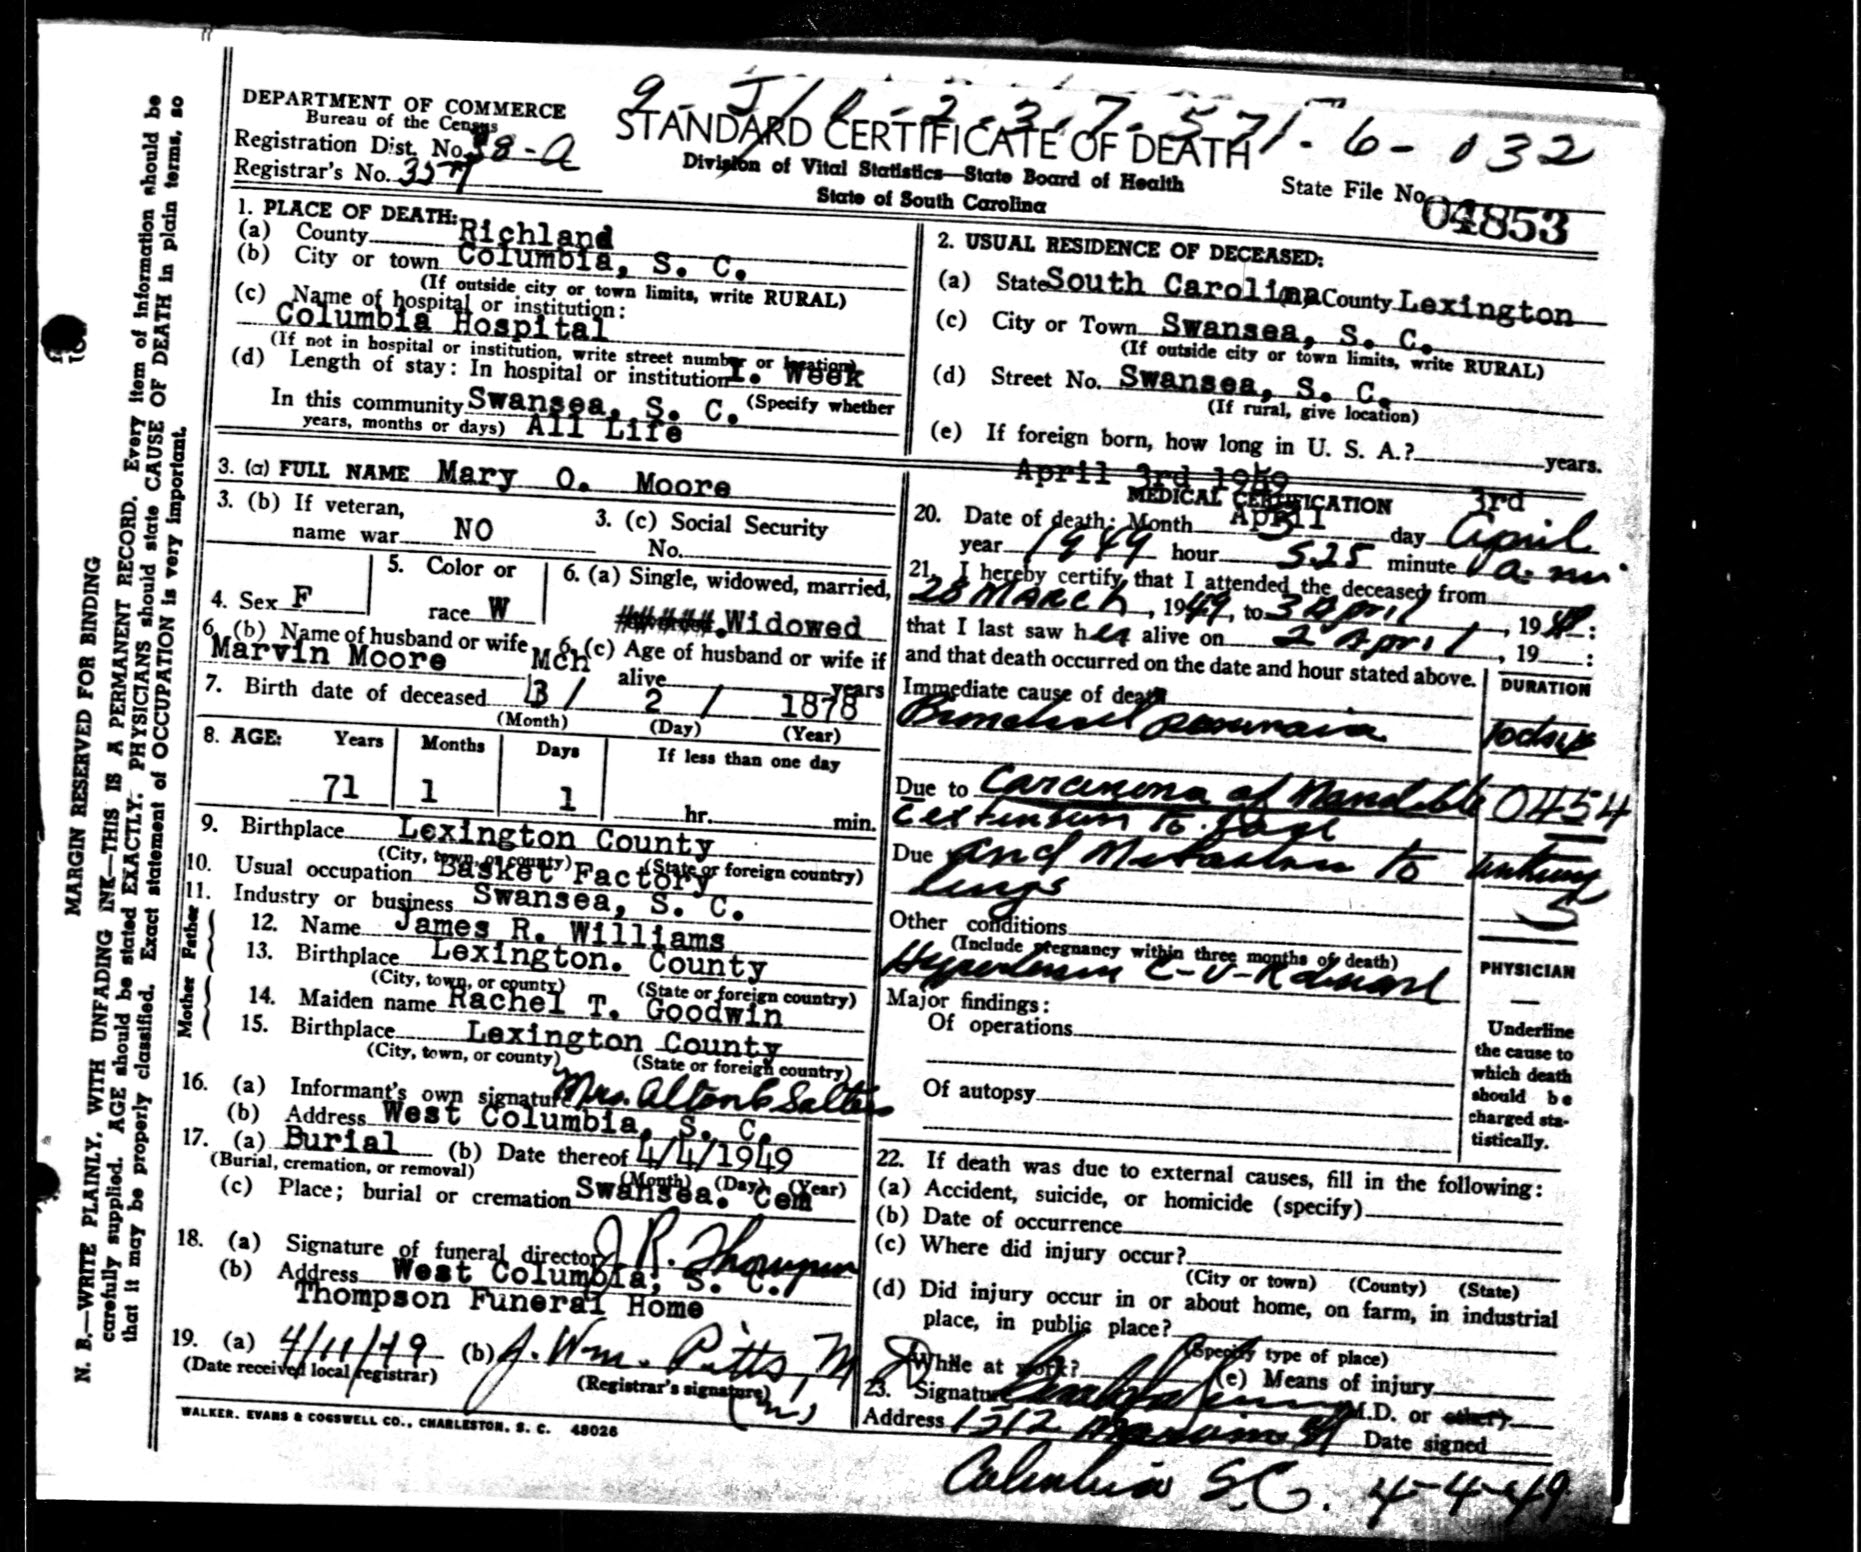 DEPARTMENT OF COMMERCE
Bureau of the Census
Registration Dist. No. 38-A
Registrar's No. 357
STANDARD CERTIFICATE OF DEATH
Division of Vital Statistics—State Board of Health
State of South Carolina
State File No. 04853
1. PLACE OF DEATH:
(a) County Richland
(b) City or town Columbia, S. C.
(If outside city or town limits, write RURAL)
(c) Name of hospital or institution:
Columbia Hospital
(If not in hospital or institution, write street number or location)
(d) Length of stay: In hospital or institution 1. Week
(Specify whether
In this community Swansea, S. C.
years, months or days) All Life
2. USUAL RESIDENCE OF DECEASED:
(a) State South Carolina County Lexington
(c) City or Town Swansea, S. C.
(If outside city or town limits, write RURAL)
(d) Street No. Swansea, S. C.
(If rural, give location)
(e) If foreign born, how long in U. S. A.? years.
3. (a) FULL NAME Mary O. Moore
3. (b) If veteran,
name war NO
3. (c) Social Security
No.
4. Sex F
5. Color or
race W
6. (a) Single, widowed, married,
Widowed
6. (b) Name of husband or wife
Marvin Moore
6. (c) Age of husband or wife if
alive years
7. Birth date of deceased 3/ 2 / 1878
(Month) (Day) (Year)
8. AGE: Years Months Days If less than one day
71 1 1 hr. min.
9. Birthplace Lexington County
(City, town, or county) (State or foreign country)
10. Usual occupation Basket Factory
11. Industry or business Swansea, S. C.
Father
12. Name James R. Williams
13. Birthplace Lexington. County
(City, town, or county) (State or foreign country)
Mother
14. Maiden name Rachel T. Goodwin
15. Birthplace Lexington County
(City, town, or county) (State or foreign country)
16. (a) Informant's own signature Mrs. Alton Salters
(b) Address West Columbia, S. C.
17. (a) Burial (b) Date thereof 4/4/1949
(Burial, cremation, or removal) (Month) (Day) (Year)
(c) Place; burial or cremation Swansea. Cem
18. (a) Signature of funeral director J. R. Thompson
(b) Address West Columbia, S. C.
Thompson Funeral Home
19. (a) 4/11/49 (b) J. Wm. Pitts, M
(Date received local registrar) (Registrar's signature)
WALKER, EVANS & COGSWELL CO., CHARLESTON, S. C. 48026
April 3rd 1949
MEDICAL CERTIFICATION
20. Date of death: Month April day 3rd April
year 1949 hour 5.25 minute a.m.
21. I hereby certify that I attended the deceased from
28 March, 1949, to 3 April, 19
that I last saw her alive on 2 April, 19 :
and that death occurred on the date and hour stated above.
DURATION
Immediate cause of death
Bronchial pneumonia
Due to Carcinoma of Mandible 0454
Extension to face
Due and Metastasis to
lungs
Other conditions
(Include pregnancy within three months of death)
Hypertension C-V-R disease
Major findings:
Of operations
Of autopsy
PHYSICIAN
—
Underline
the cause to
which death
should be
charged sta-
tistically.
22. If death was due to external causes, fill in the following:
(a) Accident, suicide, or homicide (specify)
(b) Date of occurrence
(c) Where did injury occur?
(City or town) (County) (State)
(d) Did injury occur in or about home, on farm, in industrial
place, in public place?
(Specify type of place)
While at work? (e) Means of injury
23. Signature M.D. or other)
Address 1512 Marion St Date signed
Columbia S.C. 4-4-49
MARGIN RESERVED FOR BINDING
N. B.—WRITE PLAINLY, WITH UNFADING INK—THIS IS A PERMANENT RECORD. Every item of information should be
carefully supplied. AGE should be stated EXACTLY. PHYSICIANS should state CAUSE OF DEATH in plain terms, so
that it may be properly classified. Exact statement of OCCUPATION is very important.